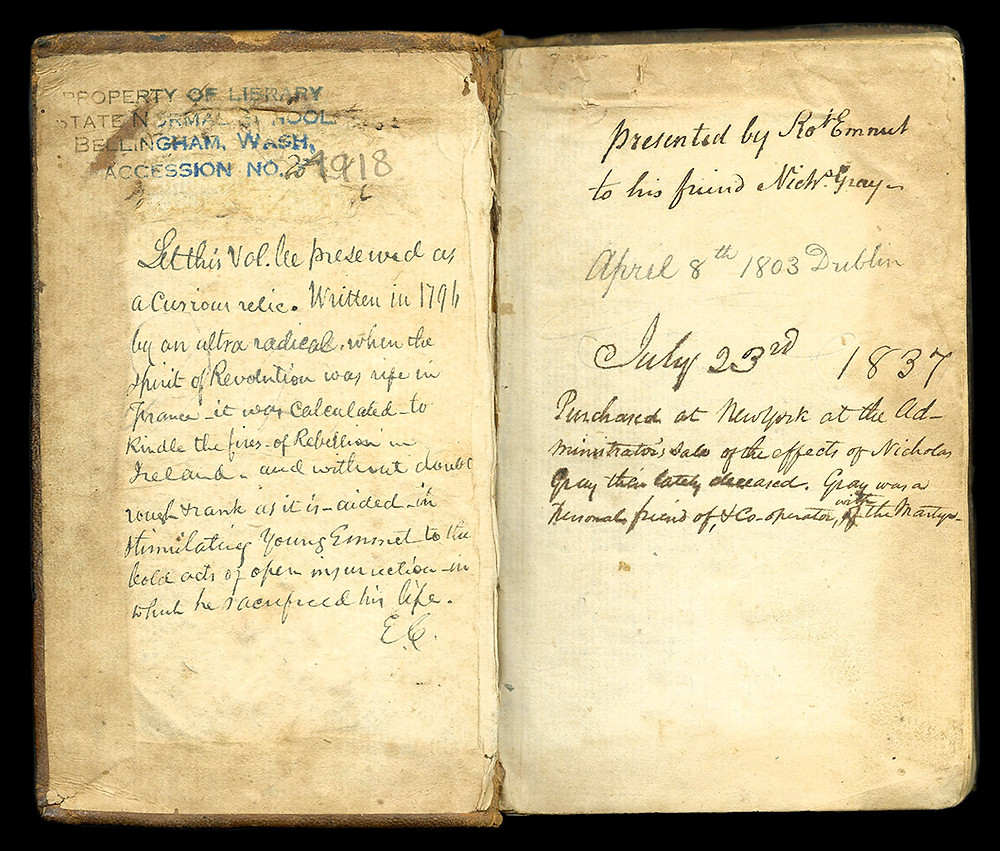 PROPERTY OF LIBRARY
STATE NORMAL SCHOOL
BELLINGHAM, WASH,
ACCESSION NO. 24918
Let this Vol. be preserved as
a curious relic. Written in 1796
by an ultra radical, when the
spirit of Revolution was rife in
France - it was calculated - to
kindle the fires - of Rebellion in
Ireland - and without doubt
rough & rank as it is - aided - in
stimulating Young Emmet to the
bold acts of open insurrection - in
which he sacrificed his life.
E.C.
Presented by Robt Emmet
to his friend Nichs. Gray -
April 8th 1803 Dublin
July 23rd 1837
Purchased at New York at the Ad-
ministrator's sale of the effects of Nicholas
Gray then lately deceased. Gray was a
personal friend of, & Co-operator, with the Martyr -